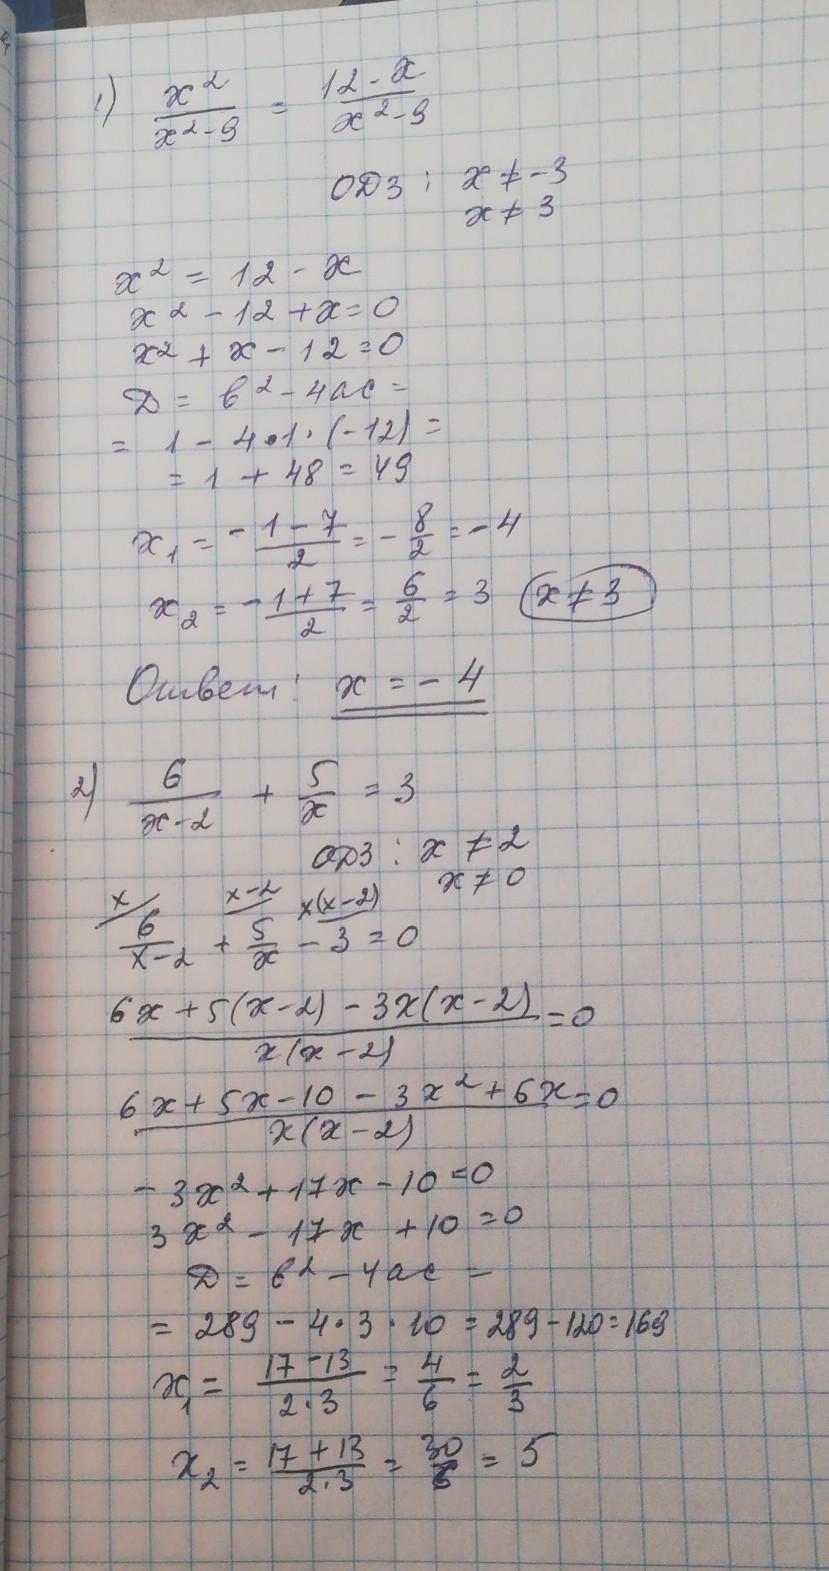 1) x²/(x²-9) = (12-x)/(x²-9)
ОДЗ: x ≠ -3
x ≠ 3
x² = 12 - x
x² - 12 + x = 0
x² + x - 12 = 0
Д = b² - 4ac =
= 1 - 4·1·(-12) =
= 1 + 48 = 49
x₁ = (-1-7)/2 = -8/2 = -4
x₂ = (-1+7)/2 = 6/2 = 3 x ≠ 3
Ответ: x = -4
2) 6/(x-2) + 5/x = 3
ОДЗ: x ≠ 2
x ≠ 0
x/ x-2 x(x-2)
6/(x-2) + 5/x - 3 = 0
(6x + 5(x-2) - 3x(x-2))/(x(x-2)) = 0
(6x + 5x - 10 - 3x² + 6x)/(x(x-2)) = 0
-3x² + 17x - 10 = 0
3x² - 17x + 10 = 0
Д = b² - 4ac =
= 289 - 4·3·10 = 289 - 120 = 169
x₁ = (17-13)/(2·3) = 4/6 = 2/3
x₂ = (17+13)/(2·3) = 30/6 = 5